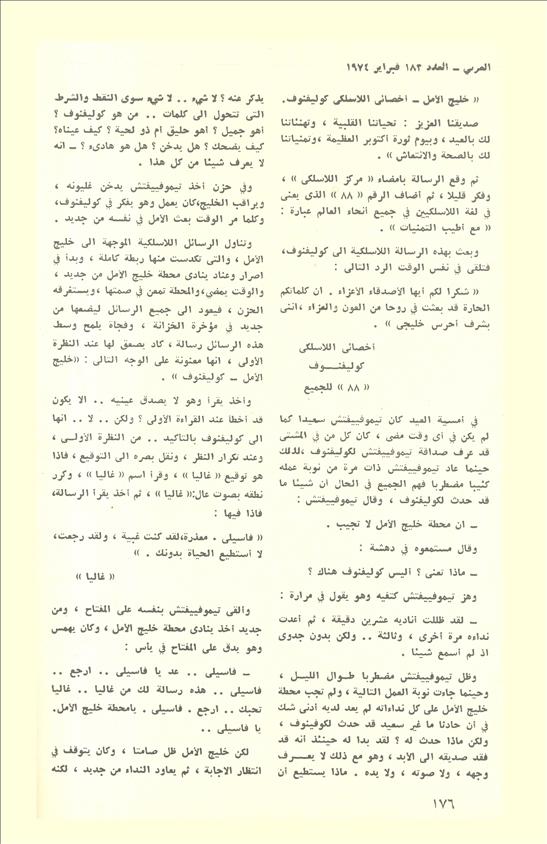 العربي – العدد ١٨٣ فبراير ١٩٧٤
« خليج الأمل – أخصائى اللاسلكى كوليفنوف.
صديقنا العزيز : تحياتنا القلبية ، وتهنئاتنا
لك بالعيد ، وبيوم ثورة أكتوبر العظيمة ، وتمنياتنا
لك بالصحة والانتعاش » .
ثم وقع الرسالة بامضاء « مركز اللاسلكى » ،
وفكر قليلا ، ثم أضاف الرقم « ٨٨ » الذى يعنى
في لغة اللاسلكيين في جميع أنحاء العالم عبارة :
« مع أطيب التمنيات » .
وبعث بهذه الرسالة اللاسلكية الى كوليفنوف،
فتلقى في نفس الوقت الرد التالى :
« شكرا لكم أيها الأصدقاء الأعزاء . ان كلماتكم
الحارة قد بعثت في روحا من العون والعزاء ،اننى
بشرف أحرس خليجى » .
أخصائى اللاسلكى
كوليفنــوف
« ٨٨ » للجميع
في أمسية العيد كان تيموفييفتش سعيدا كما
لم يكن في أى وقت مضى ، كان كل من في المشتى
قد عرف صداقة تيموفييفتش لكوليفنوف ،لذلك
حينما عاد تيموفييفتش ذات مرة من نوبة عمله
كئيبا مضطربا فهم الجميع في الحال أن شيئا ما
قد حدث لكوليفنوف ، وقال تيموفييفتش :
– ان محطة خليج الأمل لا تجيب .
وقال مستمعوه في دهشة :
– ماذا تعنى ؟ أليس كوليفنوف هناك ؟
وهز تيموفييفتش كتفيه وهو يقول في مرارة :
– لقد ظللت أناديه عشرين دقيقة ، ثم أعدت
نداءه مرة أخرى ، وثالثة .. ولكن بدون جدوى
اذ لم أسمع شيئا .
وظل تيموفييفتش مضطربا طـوال الليـل ،
وحينما جاءت نوبة العمل التالية ، ولم تجب محطة
خليج الأمل على كل نداءاته لم يعد لديه أدنى شك
في أن حادثا ما غير سعيد قد حدث لكوفينوف ،
ولكن ماذا حدث له ؟ لقد بدا له حينئذ أنه قد
فقد صديقه الى الأبد ، وهو مع ذلك لا يعــرف
وجهه ، ولا صوته ، ولا يده . ماذا يستطيع أن
يذكر عنه ؟ لا شيء .. لا شيء سوى النقط والشرط
التى تتحول الى كلمات .. من هو كوليفنوف ؟
أهو جميل ؟ أهو حليق ام ذو لحية ؟ كيف عيناه؟
كيف يضحك ؟ هل يدخن ؟ هل هو هادىء ؟ – انه
لا يعرف شيئا من كل هذا .
وفي حزن أخذ تيموفييفتش يدخن غليونه ،
ويراقب الخليج،كان يعمل وهو يفكر في كوليفنوف،
وكلما مر الوقت بعث الأمل في نفسه من جديد .
وتناول الرسائل اللاسلكية الموجهة الى خليج
الأمل ، والتى تكدست منها ربطة كاملة ، وبدأ في
اصرار وعناد ينادى محطة خليج الأمل من جديد ،
والوقت يمضى،والمحطة تمعن في صمتها ،ويستغرقه
الحزن ، فيعود الى جميع الرسائل ليضعها من
جديد في مؤخرة الخزانة ، وفجأة يلمح وسط
هذه الرسائل رسالة ، كاد يصعق لها عند النظرة
الأولى ، انها معنونة على الوجه التالى : «خليج
الأمل – كوليفنوف » .
وأخذ يقرأ وهو لا يصدق عينيه .. الا يكون
قد أخطأ عند القراءة الأولى ؟ ولكن .. لا .. انها
الى كوليفنوف بالتأكيد .. من النظرة الأولــى ،
وعند تكرار النظر ، ونقل بصره الى التوقيع ، فاذا
هو توقيع « غاليا » ، وقرأ اسم « غاليا » ، وكرر
نطقه بصوت عال:« غاليا » ، ثم أخذ يقرأ الرسالة،
فاذا فيها :
« فاسيلى . معذرة،لقد كنت غبية ، ولقد رجعت،
لا أستطيع الحياة بدونك . »
« غاليا »
وألقى تيموفييفتش بنفسه على المفتاح ، ومن
جديد أخذ ينادى محطة خليج الأمل ، وكان يهمس
وهو يدق على المفتاح في يأس :
– فاسيلى .. عد يا فاسيلى .. ارجع ..
فاسيلى .. هذه رسالة لك من غاليا .. غاليا
تحبك .. ارجع . فاسيلى . يامحطة خليج الأمل.
يا فاسيلى ..
لكن خليج الأمل ظل صامتا ، وكان يتوقف في
انتظار الاجابة ، ثم يعاود النداء من جديد ، لكنه
١٧٦